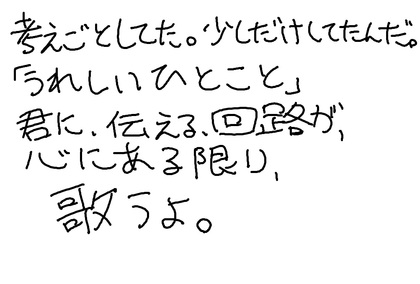 考えごとしてた。少しだけしてたんだ。
「うれしいひとこと」
君に、伝える、回路が、
心にある限り、
歌うよ。